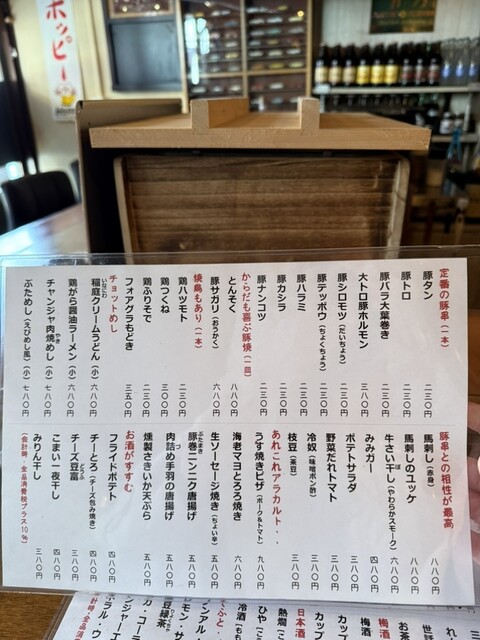 ホッピー
定番の豚串（一本）
豚タン 二三〇円
豚トロ 二三〇円
豚バラ大葉巻き 二三〇円
大トロ豚ホルモン 三八〇円
豚シロモツ（だいちょう） 二三〇円
豚テッポウ（ちょくちょう） 二三〇円
豚ハラミ 二三〇円
豚カシラ 二三〇円
豚ナンコツ 二三〇円
からだも喜ぶ豚焼（一皿）
とんそく 八八〇円
豚サガリ（おうかく） 六八〇円
焼鳥もあり（一本）
鶏ハツモト 二三〇円
鶏つくね 三〇〇円
鶏ふりそで 二三〇円
フォアグラもどき 三五〇円
チョットめし
稲庭クリームうどん（小）六八〇円
いなにわ
鶏がら醤油ラーメン（小）六八〇円
チャンジャ肉焼めし（小）七八〇円
やき
ぶためし（えびめし風）（小）七八〇円
豚串との相性が最高
馬刺し（赤身） 八八〇円
馬刺しのユッケ 八八〇円
牛さい干し（やわらかスモーク） 六八〇円
ぼ
みみガー 四八〇円
ポテトサラダ 五八〇円
野菜だれトマト 五八〇円
冷奴（味噌ポン酢） 三八〇円
枝豆（茶豆） 三八〇円
あれこれアラカルト・・
うす焼きピザ（ポーク&トマト） 九八〇円
海老マヨとろろ焼き 六八〇円
生ソーセージ焼き（ちょい辛） 五八〇円
豚巻ニンニク唐揚げ 五八〇円
ぶたまき
肉詰め手羽の唐揚げ 五八〇円
燻製さきいか天ぷら 五八〇円
お酒がすすむ
フライドポテト 四八〇円
チーとろ（チーズ包み焼き） 四八〇円
チーズ豆富 三八〇円
とうふ
こまい一夜干し 四八〇円
みりん干し 三八〇円
（会計時、全品消費税プラス10％）
梅酒
梅酒
日本酒
熱燗
冷酒